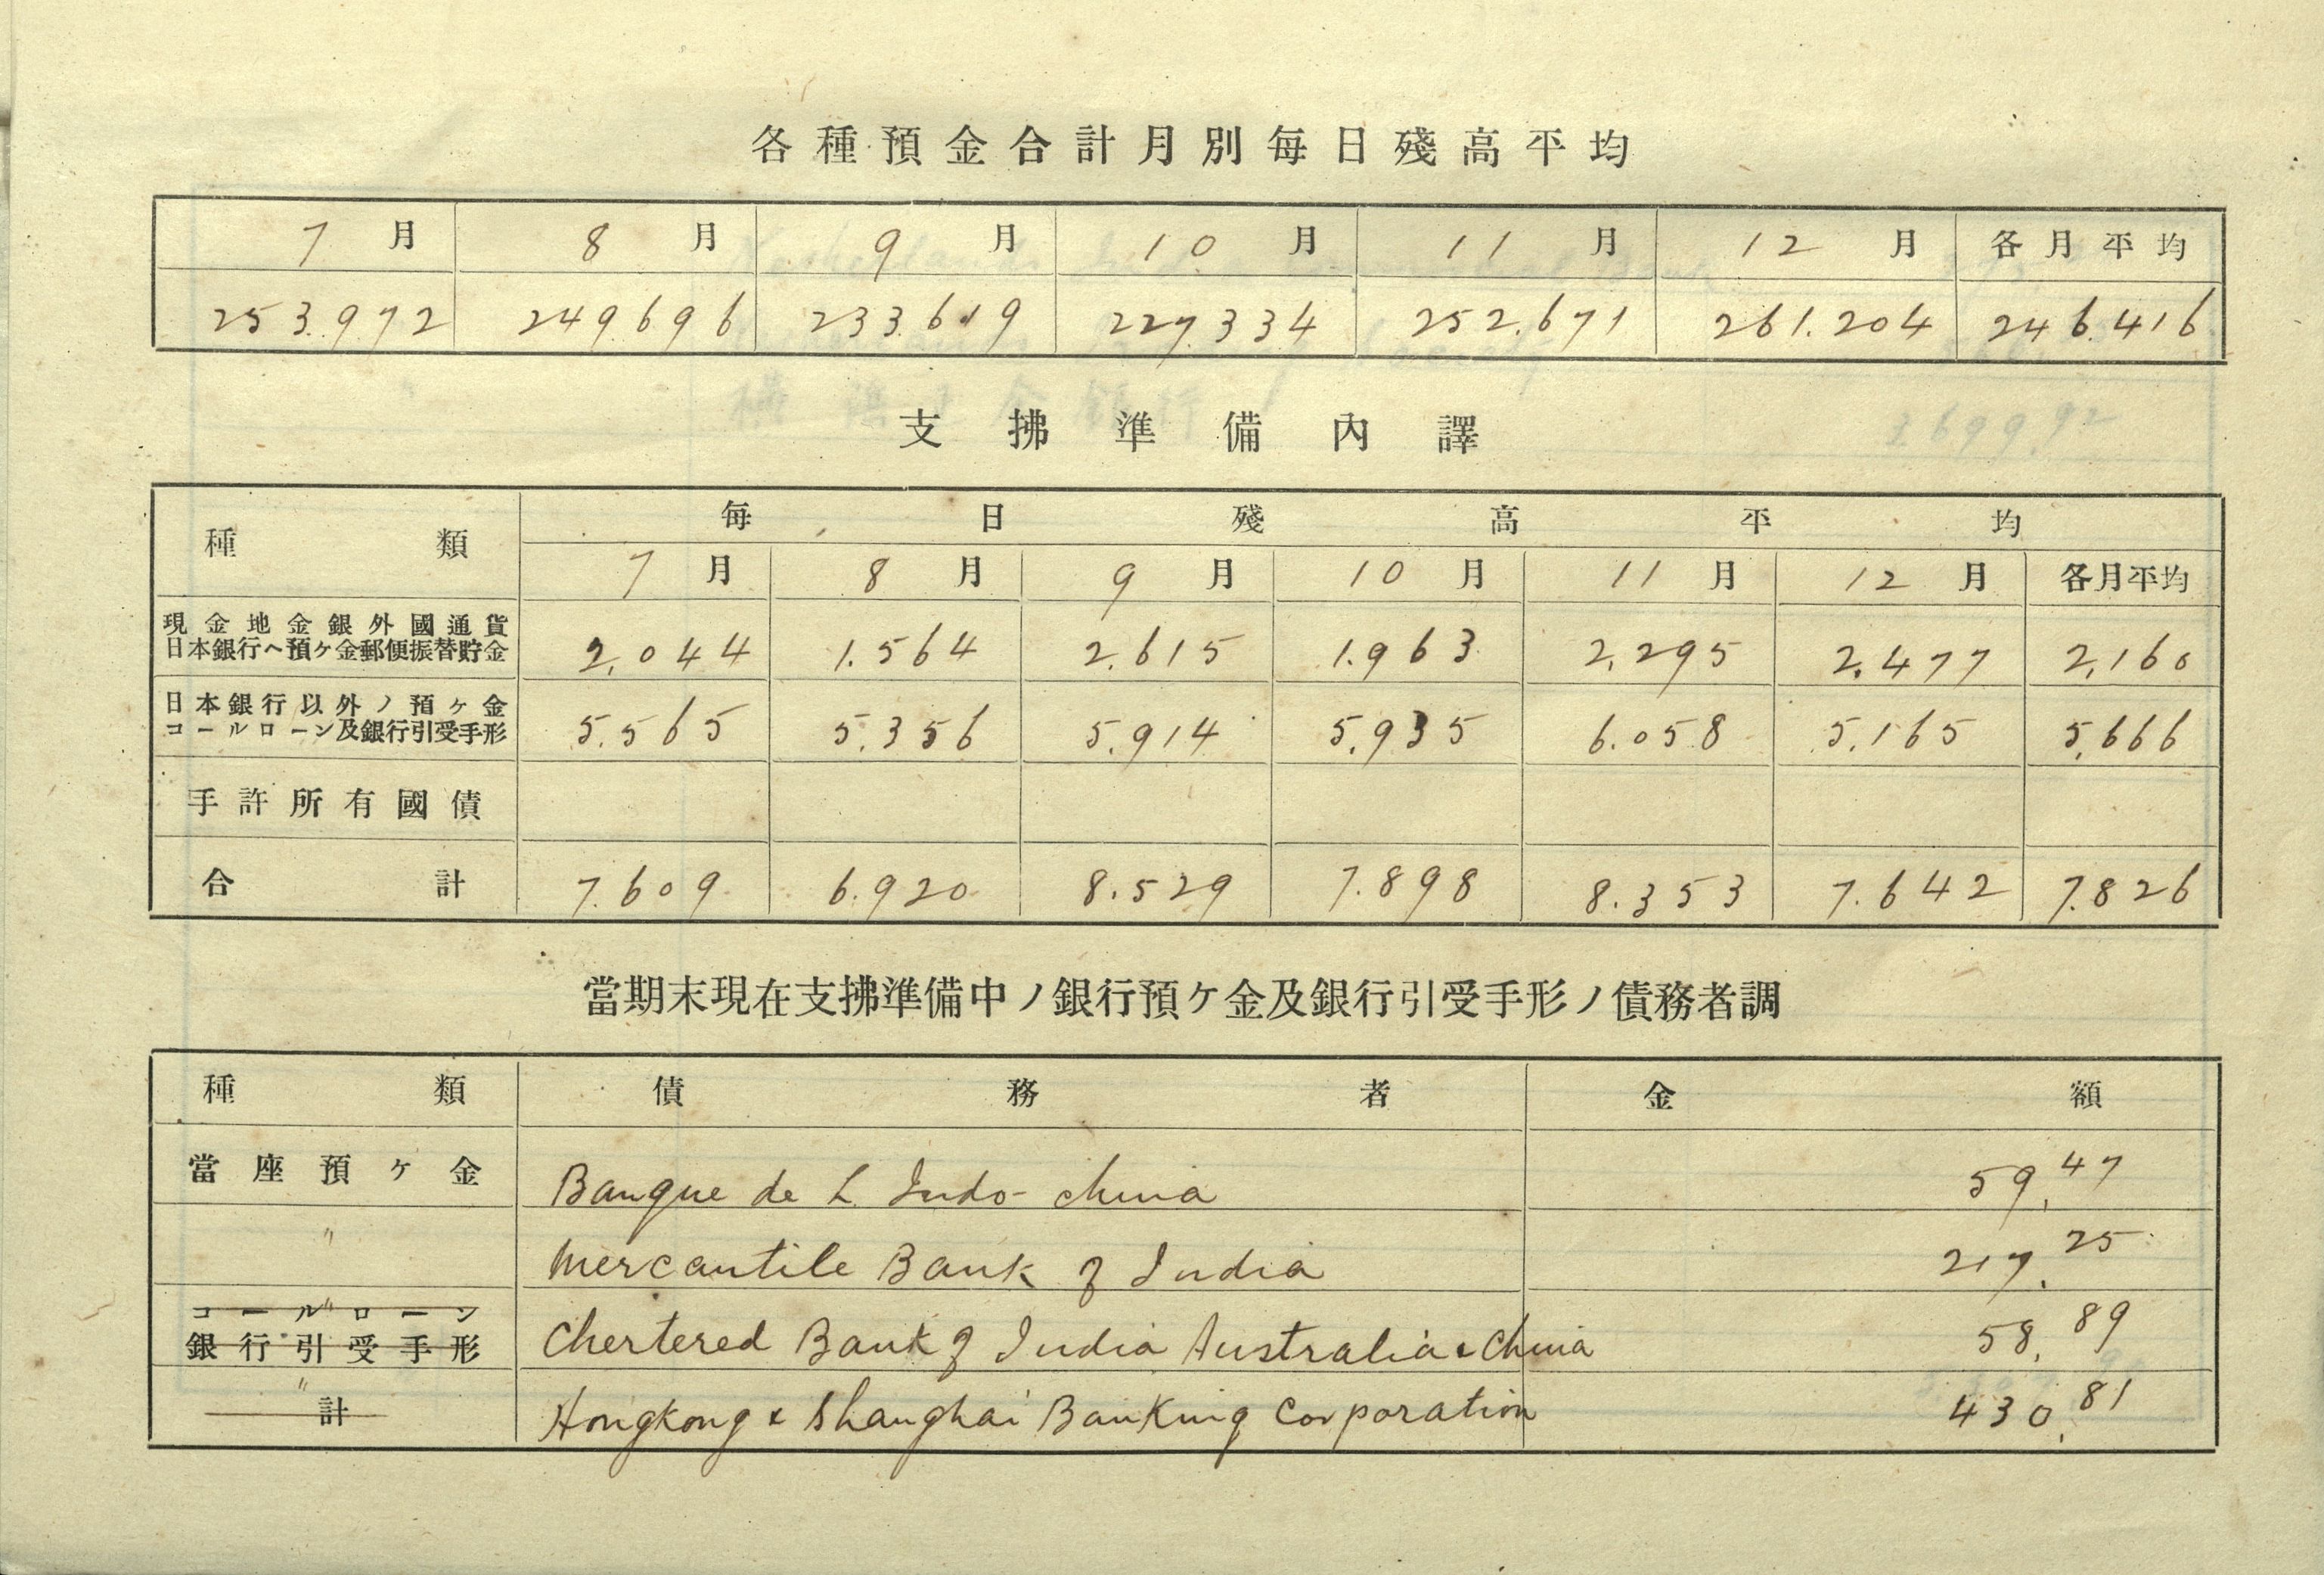 各種預金合計月別每日殘高平均
7月 8月 9月 10月 11月 12月 各月平均
253.972 249.696 233.619 227.334 252.671 261.204 246.416
支拂準備內譯
種類 每日殘高平均
7月 8月 9月 10月 11月 12月 各月平均
現金地金銀外國通貨
日本銀行ヘ預ケ金郵便振替貯金 2.044 1.564 2.615 1.963 2.295 2.477 2.160
日本銀行以外ノ預ケ金
コールローン及銀行引受手形 5.565 5.356 5.914 5.935 6.058 5.165 5.666
手許所有國債
合計 7.609 6.920 8.529 7.898 8.353 7.642 7.826
當期末現在支拂準備中ノ銀行預ケ金及銀行引受手形ノ債務者調
種類 債務者 金額
當座預ケ金 Banque de L Indo-china 59.47
〃 Mercantile Bank of India 217.25
コールローン 〃
銀行引受手形 Chertered Bank of India Australia & China 58.89
〃 計 Hongkong & Shanghai Banking Corporation 430.81